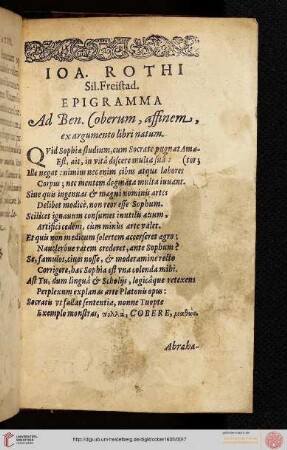 IOA. ROTHI
Sil. Freistad.
EPIGRAMMA
Ad Ben. Coberum, affinem,
ex argumento libri natum.
QVid Sophiæ studium, cum Socrate pugnat Ama-
Est, ait, in vitâ discere multa sua: (tor;
Ille negat: nimium nec enim cibus atque labores
Corpus; nec mentem dogmata multa iuuant.
Sine quis ingenuas & magni nominis artes
Delibet modicè, non reor esse Sophum.
Scilicet ignauum consumet inutilis ætum,
Artifici cedens, cum minus arte valet.
Et quis non medicum solertem accerseret ægro;
Nauclerove ratem crederet, ante Sophum?
Se, famulos, ciues nosse, & moderamine recto
Corrigere, hæc Sophia est vna colenda mihi.
Ast Tu, dum linguâ & Scholijs, logicâque retexens
Perplexum explanas arte Platonis opus:
Socratis vt fallat sententia, nonne Tuopte
Exemplo monstras, πολλὰ, COBERE,
Abraha-
http://digi.ub.uni-heidelberg.de/diglit/cober1609/0017